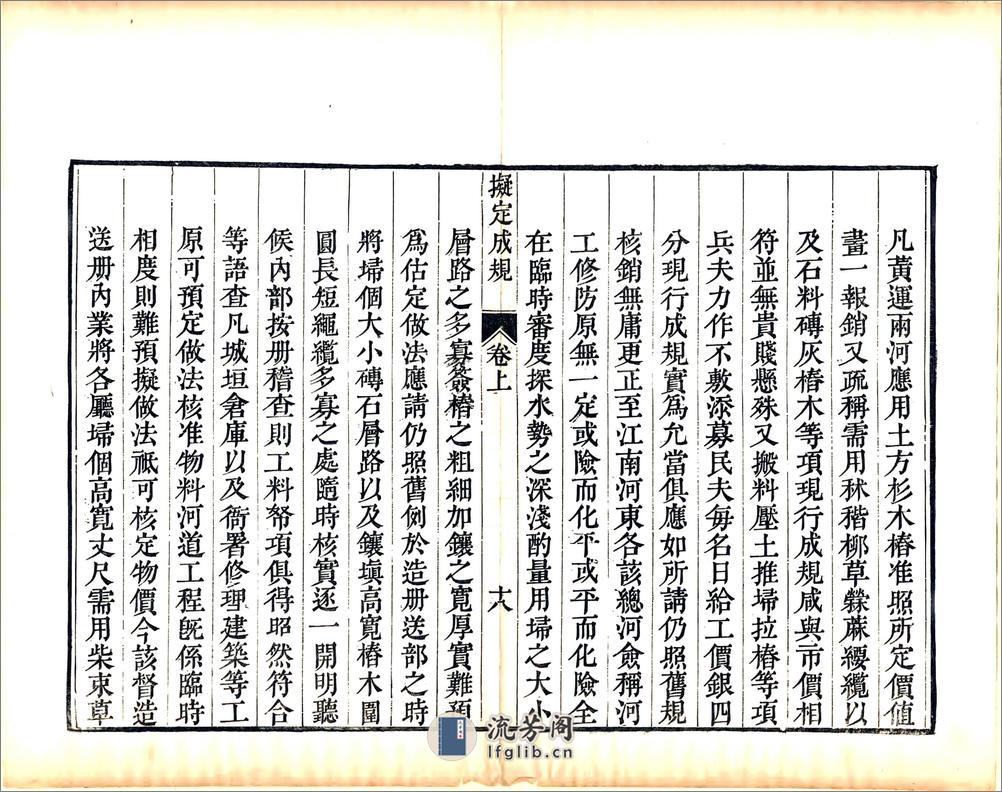 凡黃運兩河應用土方杉木樁准照所定價值
畫一報銷又疏稱需用秫稭柳草檾蔴纓纜以
及石料磚灰樁木等項現行成規咸與市價相
符並無貴賤懸殊又搬料壓土推埽拉樁等項
兵夫力作不敷添募民夫每名日給工價銀四
分現行成規實爲允當俱應如所請仍照舊規
核銷無庸更正至江南河東各該總河僉稱河
工修防原無一定或險而化平或平而化險全
在臨時審度探水勢之深淺酌量用埽之大小
擬定成規 卷上 十八
層路之多寡簽樁之粗細加鑲之寬厚實難預
爲估定做法應請仍照舊例於造册送部之時
將埽個大小磚石層路以及鑲塡高寬樁木圍
圓長短繩纜多寡之處隨時核實逐一開明聽
候內部按册稽查則工料帑項俱得昭然符合
等語查凡城垣倉庫以及衙署修理建築等工
原可預定做法核准物料河道工程旣係臨時
相度則難預擬做法祗可核定物價今該督造
送册內業將各廳埽個高寬丈尺需用柴束草
流芳閣
lfglib.cn